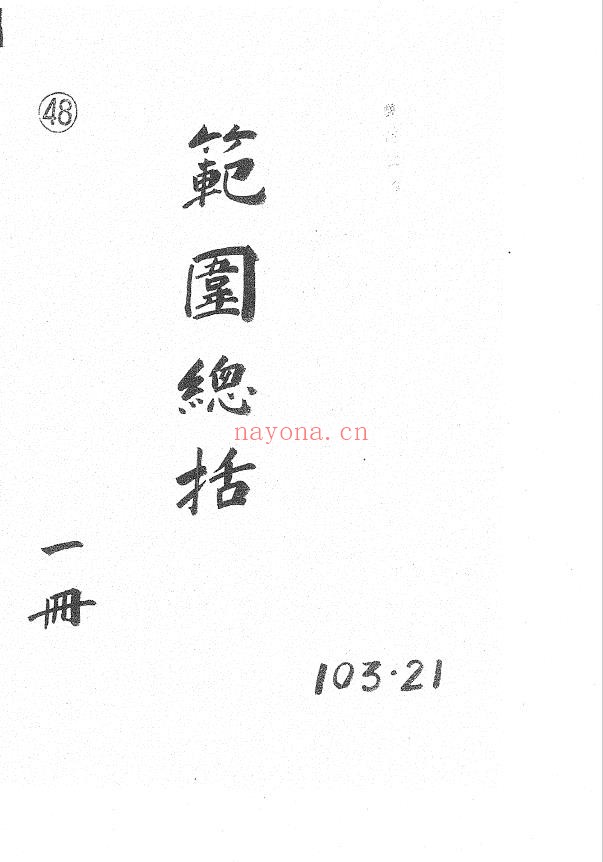 48
範圍總括
nayona.cn
一冊
103·21